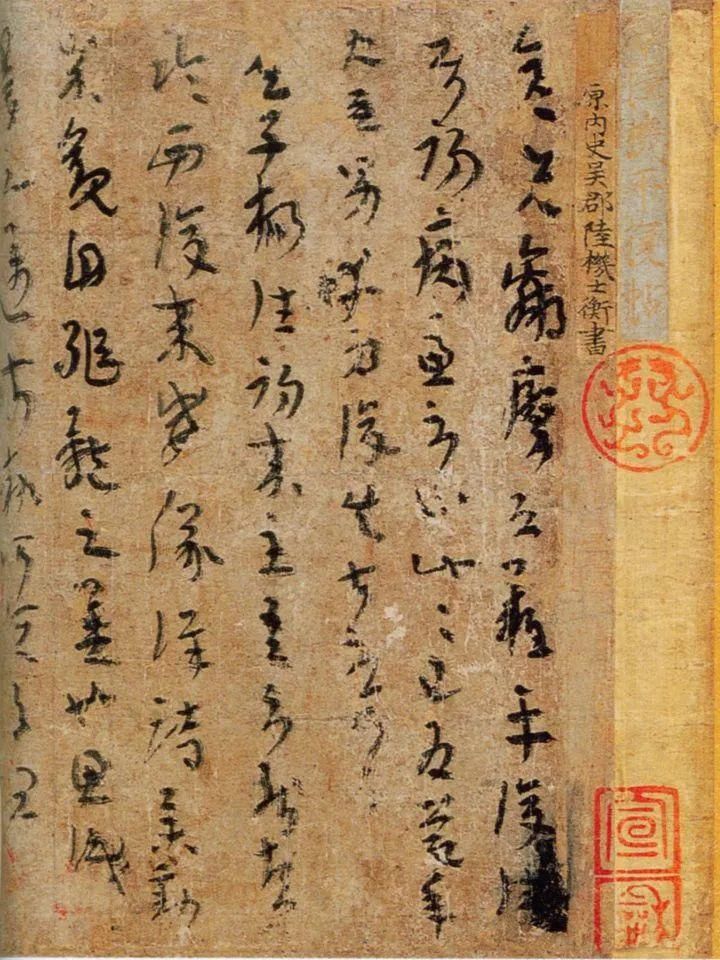 陸機平復帖
原內史吳郡陸機士衡書
彥先羸瘵恐難平復往屬
初病慮不止此此已為慶承
使唯男幸為復失前憂耳
吳子楊往初來主吾不能盡
臨西復來威儀詳跱舉動
成觀自軀體之美也思識
量之邁前執所恒有宜
宣和